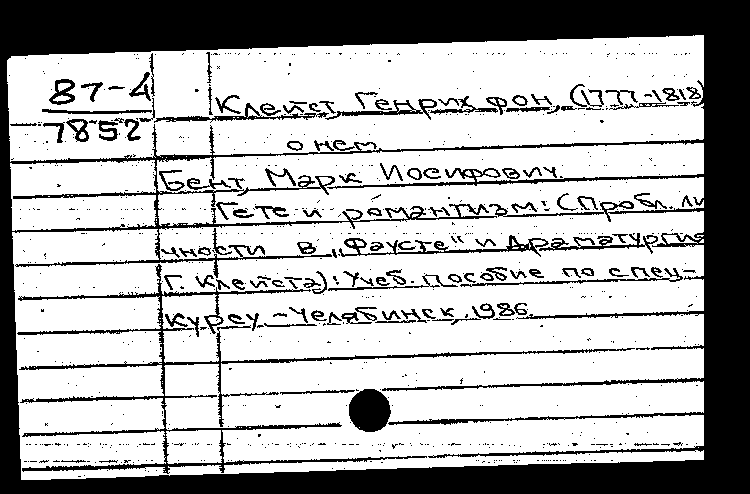 87-4
7852
Клейст, Генрих фон, (1777-1818)
о нем
Бент, Марк Иосифович.
Гете и романтизм: (Пробл. ли
чности в „Фаусте" и драматургия
Г. Клейста): Учеб. пособие по спец-
курсу. - Челябинск, 1986.